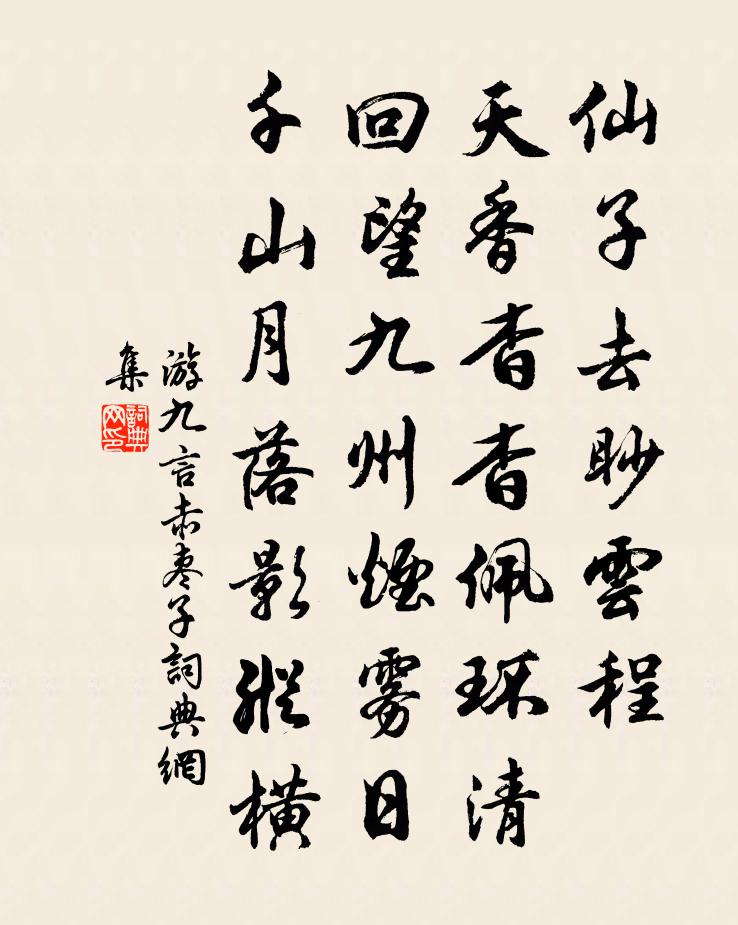 仙子去眇雲程
天香杳杳佩环清
回望九州煙雾日
千山月落影縱橫
游九言赤枣子詞典網
集
詞典
网印